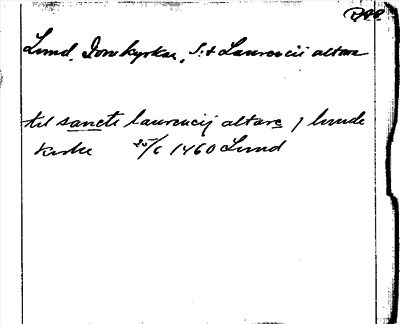 Lund. Domkyrkan, S:t Laurencii altare
til sancti laurencij altare j lunde
kirke 25/6 1460 Lund